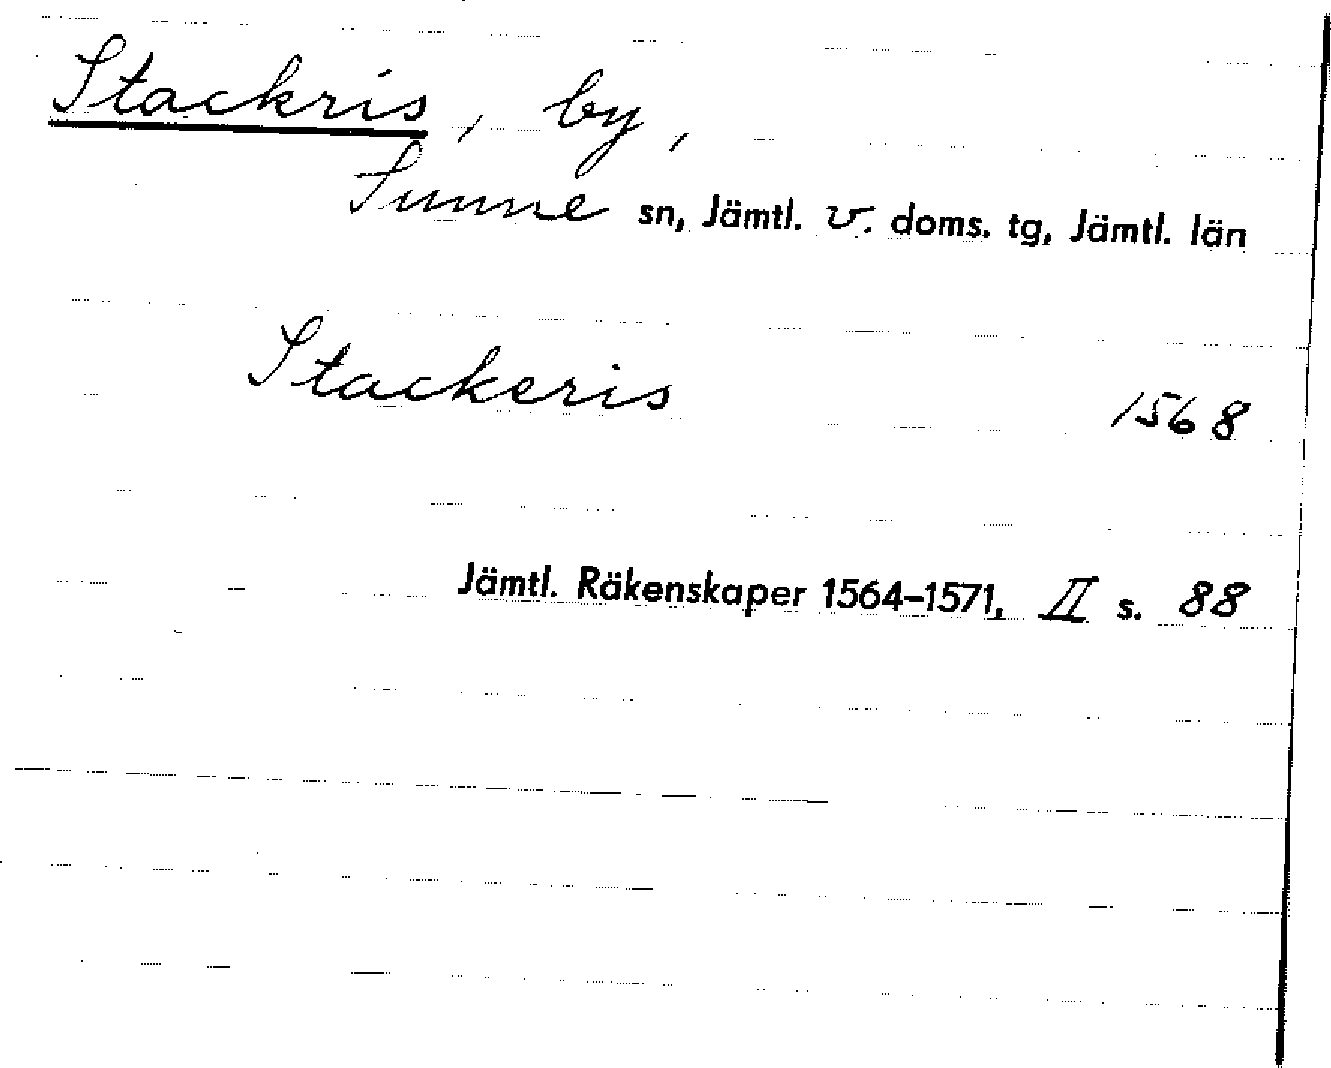 Stackris, by,
Sunne sn, Jämtl. v. doms. tg, Jämtl. län
Stackeris 1568
Jämtl. Räkenskaper 1564–1571, II s. 88